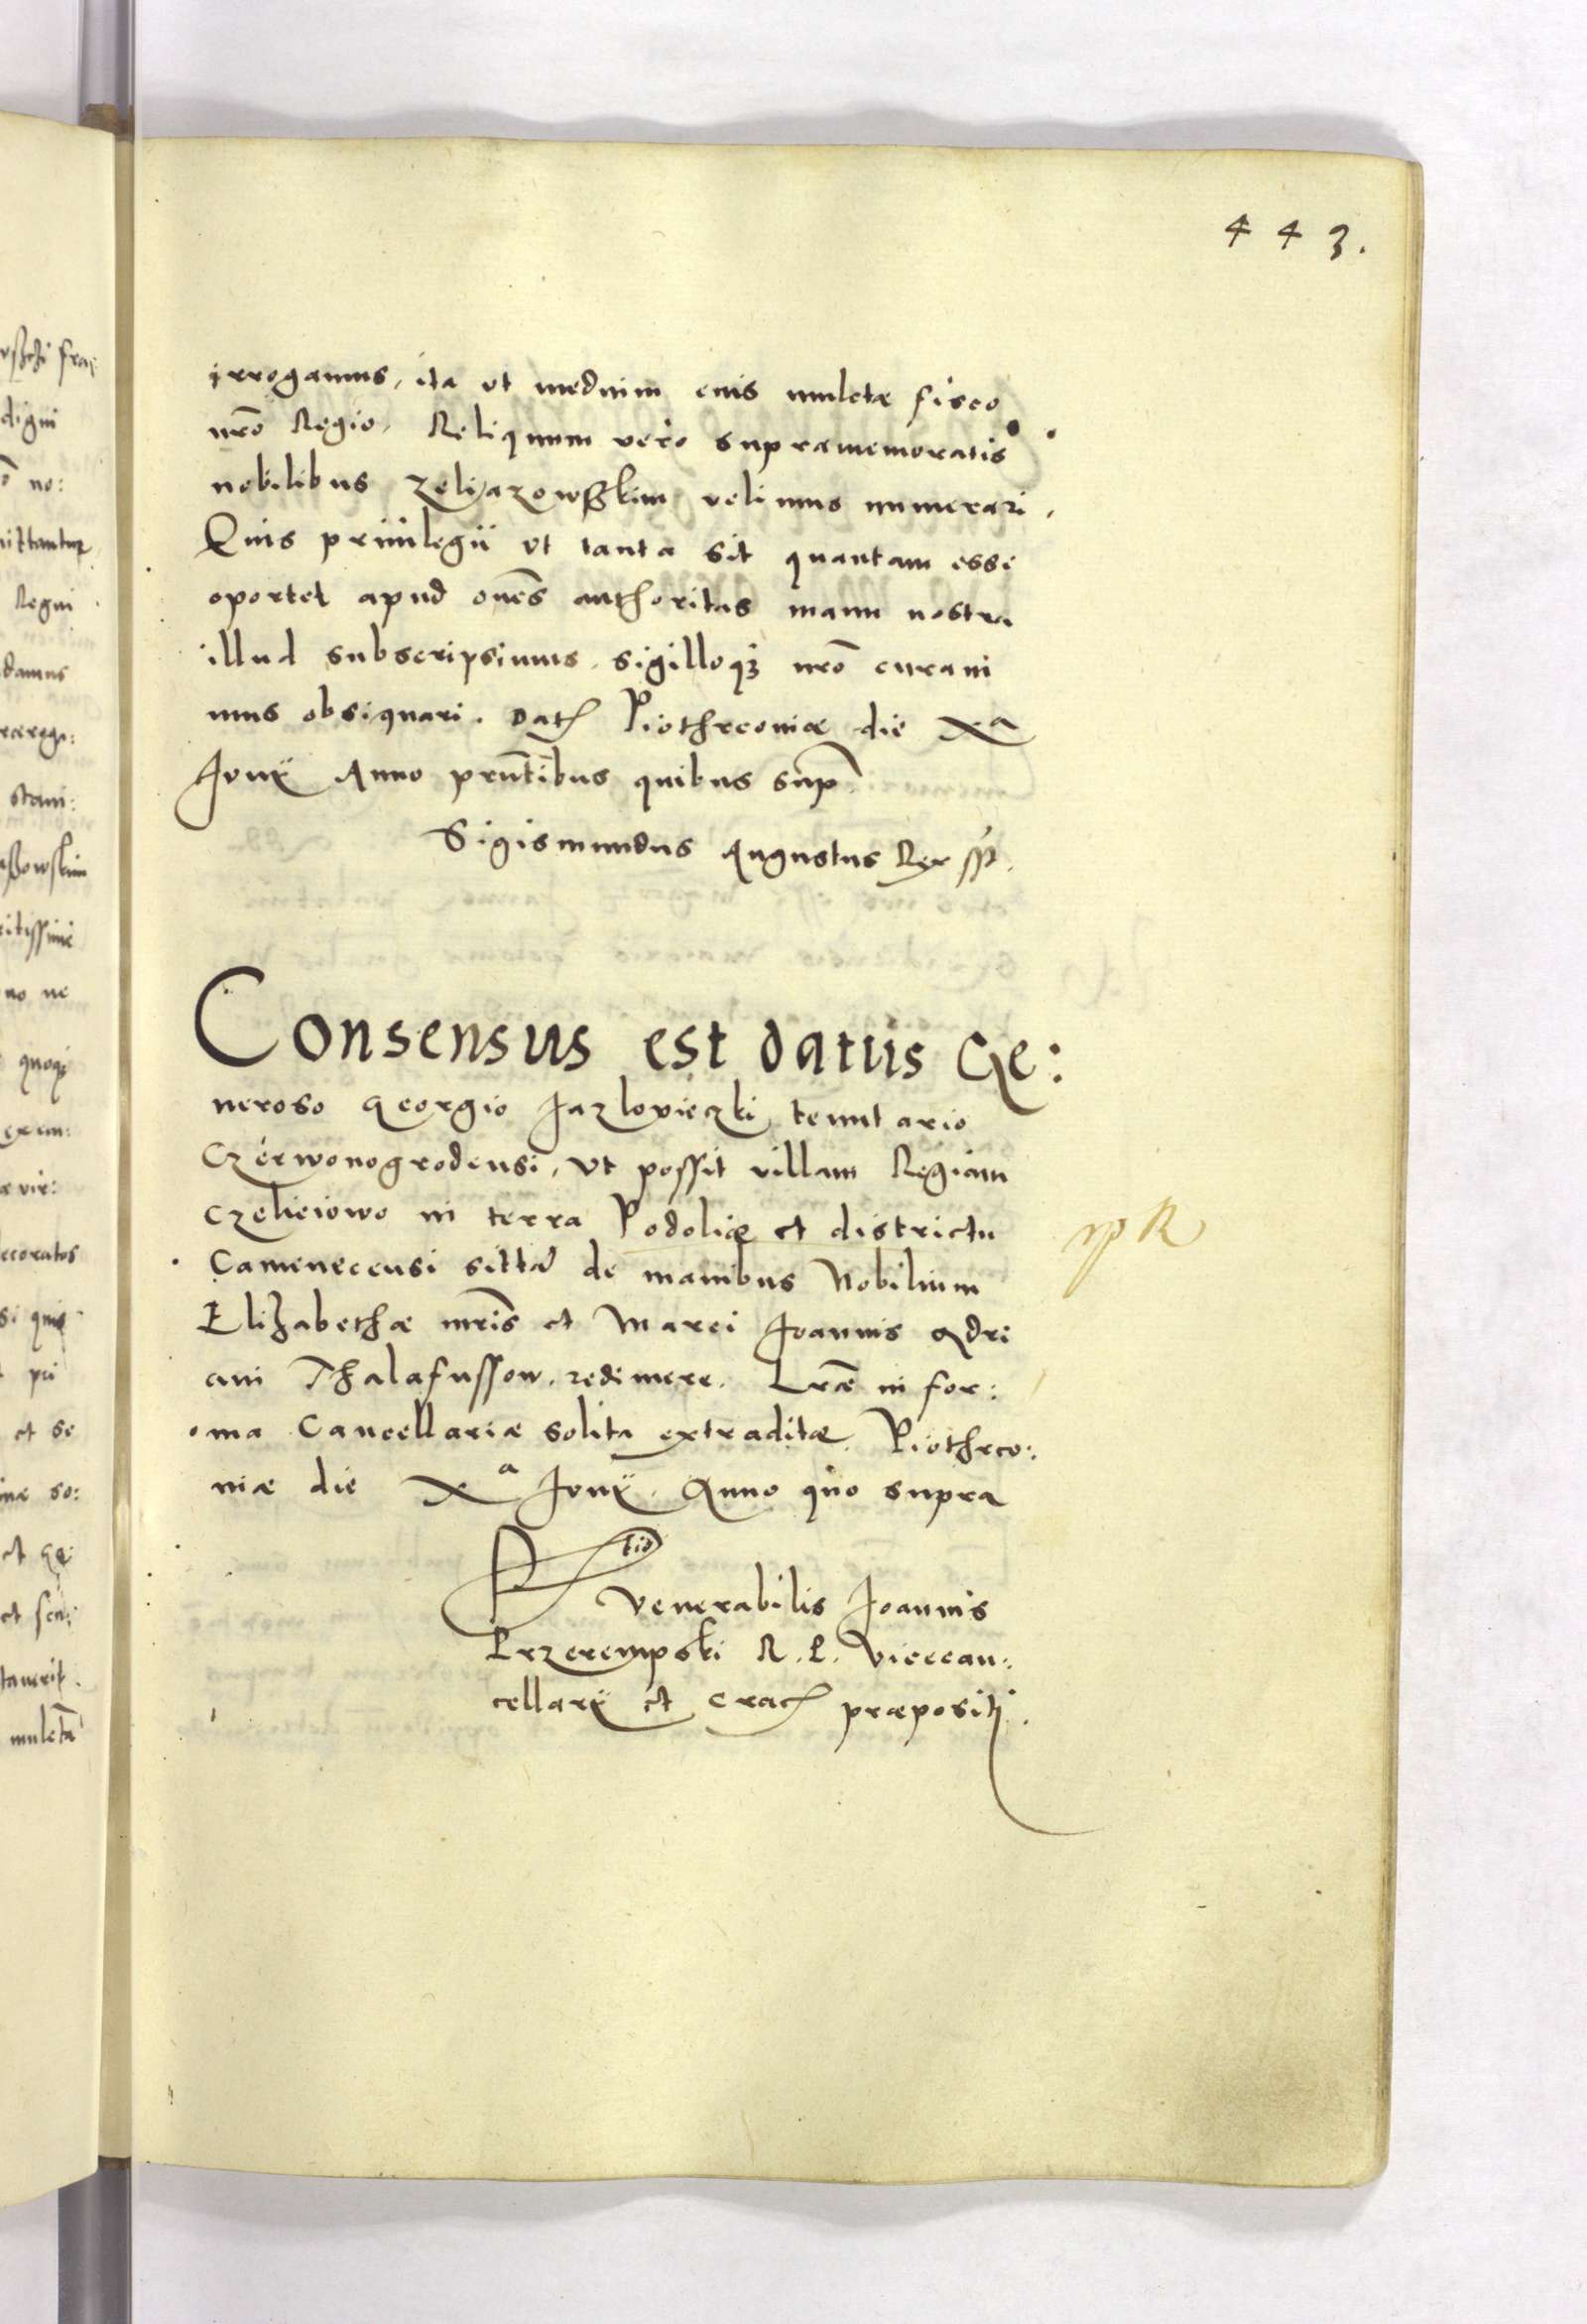 443.
irrogamus, ita ut medium euis mulctæ fisco
nrõ Regio. Reliquum vero supramemoratis
nobilibus Zeliazowskim velimus numerari.
Quis priuilegii ut tanta sit quantam esse
oportet apud oñes authoritas manu nostra
illud subscripsimus. sigilloqꝫ nrõ curaui
mus obsignari. Datꝭ Piothrconiæ die Xª
Jouÿ Anno prñtibus quibus supꝛ.
Sigismundus Augustus Rex sst.
Consensus est datus Ge:
neroso Georgio Jazlovieczki tenutario
Czerwonogrodensi, ut possit villam Regiam
Czelieiowo in terra Podoliæ et districtu
Camenecensi sittã de manibus Nobilium
Elizabethæ mrĩs et Marci Joannis Adri
ani Thalafussow. redimere. Lræ in for:
ma Cancellariæ solita extraditæ. Piothrco:
niæ die Xª Jouÿ. Anno quo supra
Rtio
Venerabilis Joannis
Przerempski R. P. Viccecan:
cellarÿ et Cracꝭ præpositi.